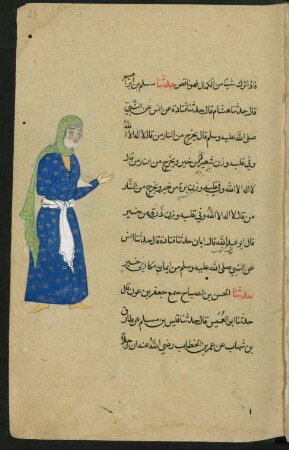 23
فاذا ترك شيأ من الكمال فهو ناقص حدثنا مسلم بن ابراهيم
قال حدثنا هشام قال حدثنا قتادة عن انس عن النبي
صلى الله عليه وسلم قال يخرج من النار من قال لا اله الا الله
وفي قلبه وزن شعيرة من خير ويخرج من النار من قال
لا اله الا الله وفي قلبه وزن برة من خير ويخرج من النار
من قال لا اله الا الله وفي قلبه وزن ذرة من خير
قال ابو عبد الله قال ابان حدثنا قتادة قال حدثنا انس
عن النبي صلى الله عليه وسلم من ايمان مكان خير
حدثنا الحسن بن الصباح سمع جعفر بن عون قال
حدثنا ابو العميس قال حدثنا قيس بن مسلم عن طارق
بن شهاب عن عمر بن الخطاب رضي الله عنه ان رجلا